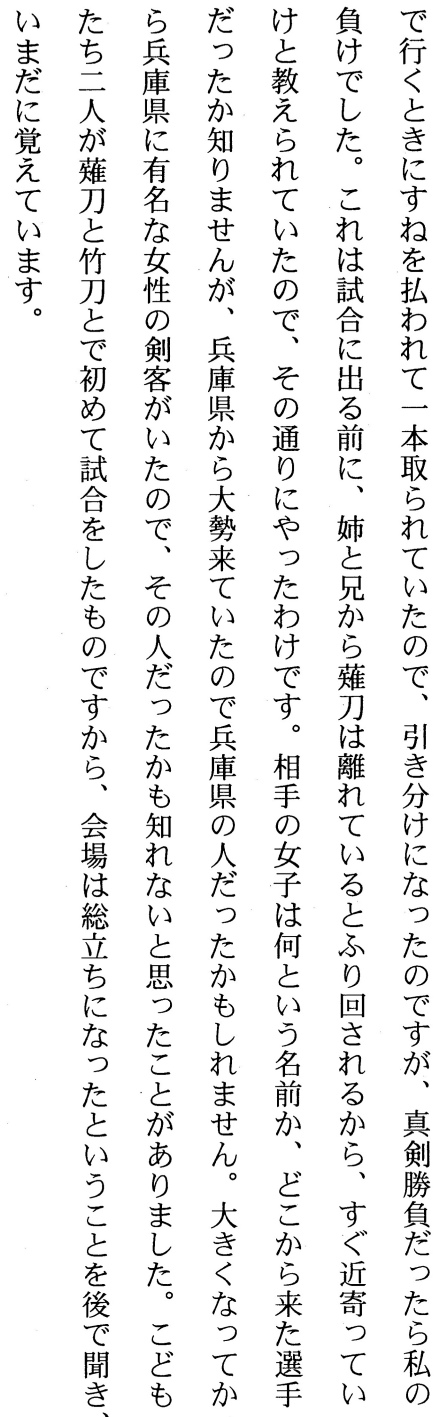 で行くときにすねを払われて一本取られていたので、引き分けになったのですが、真剣勝負だったら私の
負けでした。これは試合に出る前に、姉と兄から薙刀は離れているとふり回されるから、すぐ近寄ってい
けと教えられていたので、その通りにやったわけです。相手の女子は何という名前か、どこから来た選手
だったか知りませんが、兵庫県から大勢来ていたので兵庫県の人だったかもしれません。大きくなってか
ら兵庫県に有名な女性の剣客がいたので、その人だったかも知れないと思ったことがありました。こども
たち二人が薙刀と竹刀とで初めて試合をしたものですから、会場は総立ちになったということを後で聞き、
いまだに覚えています。